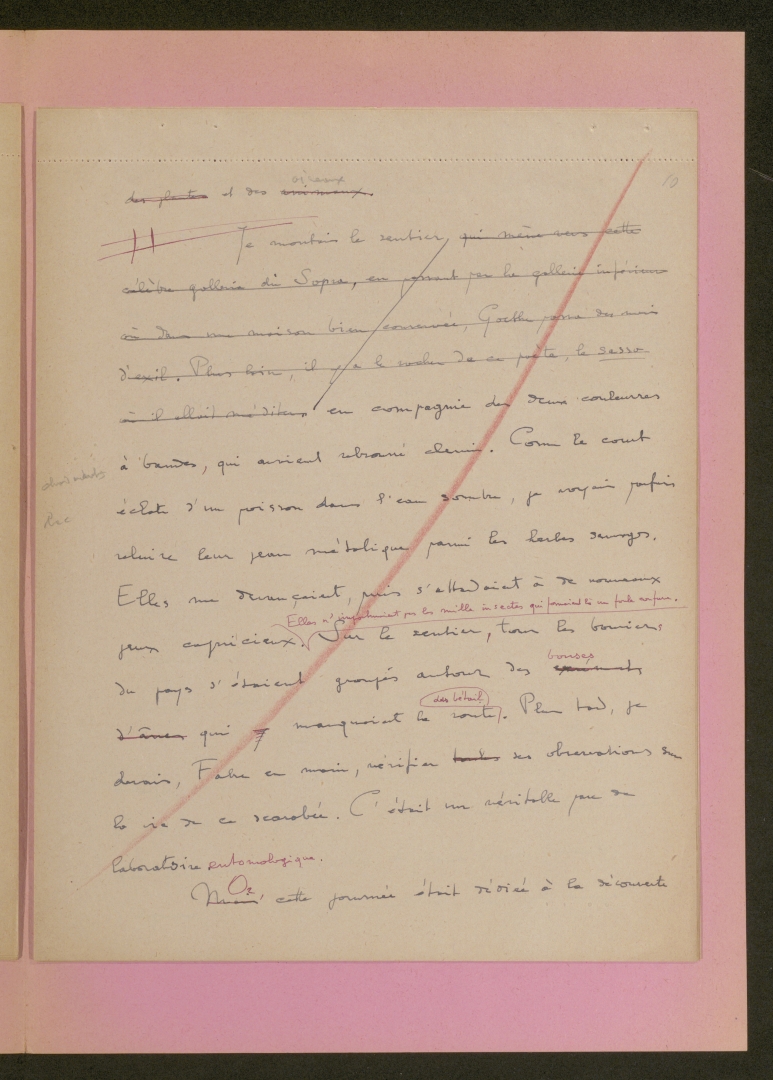 10
oiseaux
des plantes et des animaux.
Je montais le sentier, qui mène vers cette
célèbre galleria di Sopra, en passant par la galleria inférieure
où dans une maison bien conservée, Goethe passa des mois
d'exil. Plus loin, il y a le rocher de ce poète, le sasso
où il allait méditer, en compagnie des deux couleuvres
à bandes, qui avaient rebroussé chemin. Comme le court
éclat d'un poisson dans l'eau sombre, je voyais parfois
reluire leur peau métalique parmi les herbes sauvages.
Elles me devançaient, puis s'attardaient à de nouveaux
Elles n' par les mille insectes qui
jeux capricieux. Sur le sentier, tous les bousiers
bouses
du pays s'étaient groupés autour des
de bétail
d'ânes qui marquaient la route. Plus tard, je
devais, Fabre en main, vérifier toutes ses observations sur
la vie de ce scarabée. C'était un véritable parc de
laboratoire entomologique.
Or
Mais cette journée était dédiée à la découverte